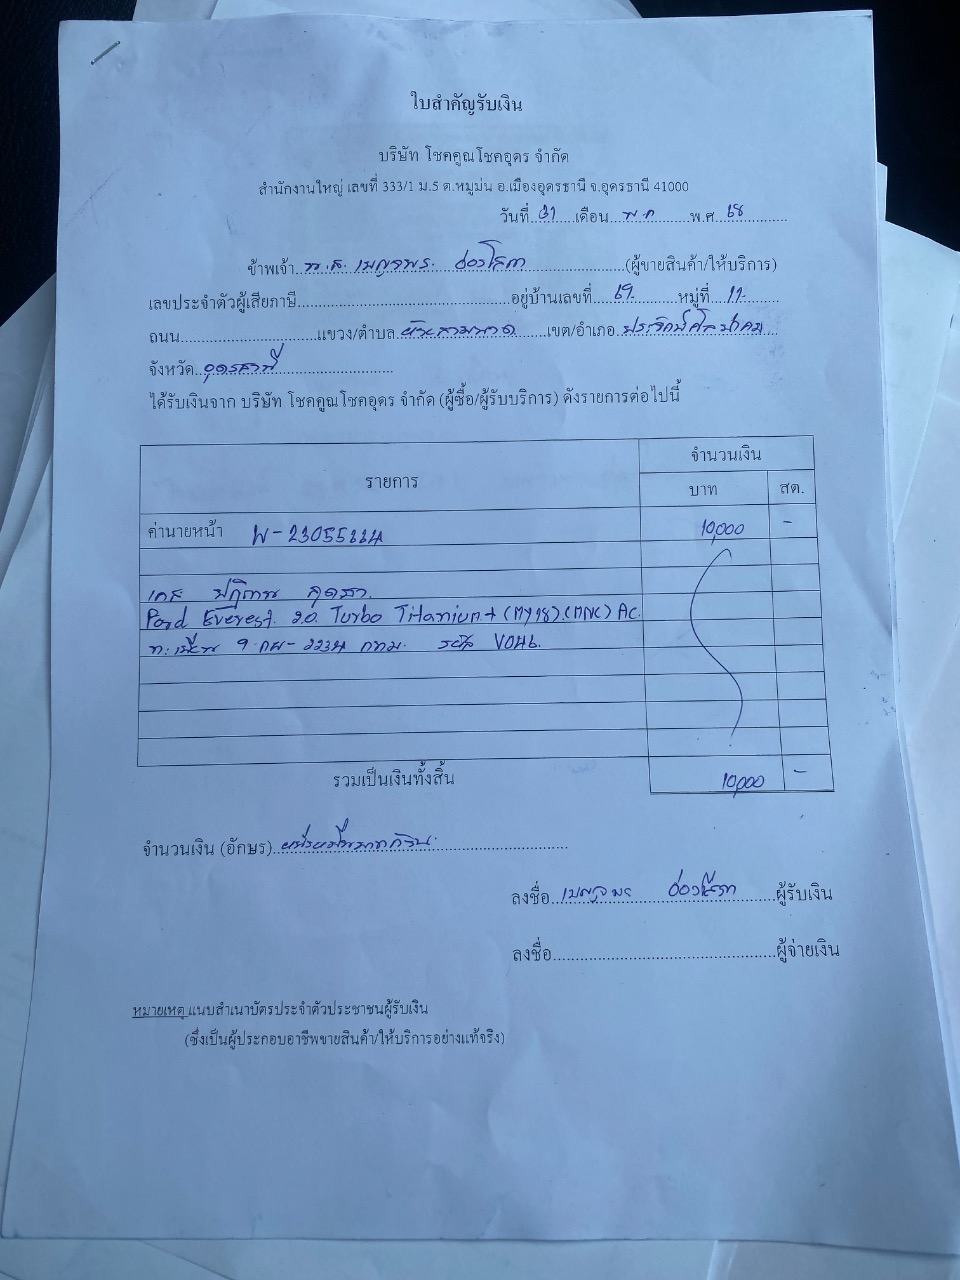 ใบสำคัญรับเงิน
บริษัท โชคคูณโชคอุดร จำกัด
สำนักงานใหญ่ เลขที่ 333/1 ม.5 ต.หมูม่น อ.เมืองอุดรธานี จ.อุดรธานี 41000
วันที่ 31 เดือน พ.ค พ.ศ 68
ข้าพเจ้า น.ส. เบญจพร (ผู้ขายสินค้า/ให้บริการ)
เลขประจำตัวผู้เสียภาษี อยู่บ้านเลขที่ 69 หมู่ที่ 11
ถนน แขวง/ตำบล ห้วยสามพาด เขต/อำเภอ ประจักษ์ศิลปาคม
จังหวัด อุดรธานี
ได้รับเงินจาก บริษัท โชคคูณโชคอุดร จำกัด (ผู้ซื้อ/ผู้รับบริการ) ดังรายการต่อไปนี้
รายการ จำนวนเงิน
บาท สต.
ค่านายหน้า 10,000 -
เคส ปฏิภาณ
Ford Everest 2.0 Turbo Titanium+ (My18).(MNC) AC.
ท:เบียน 9 กผ-2234 กทม. รหัส
รวมเป็นเงินทั้งสิ้น 10,000 -
จำนวนเงิน (อักษร) หนึ่งหมื่นบาทถ้วน
ลงชื่อ เบญจพร ผู้รับเงิน
ลงชื่อ ผู้จ่ายเงิน
หมายเหตุ แนบสำเนาบัตรประจำตัวประชาชนผู้รับเงิน
(ซึ่งเป็นผู้ประกอบอาชีพขายสินค้า/ให้บริการอย่างแท้จริง)